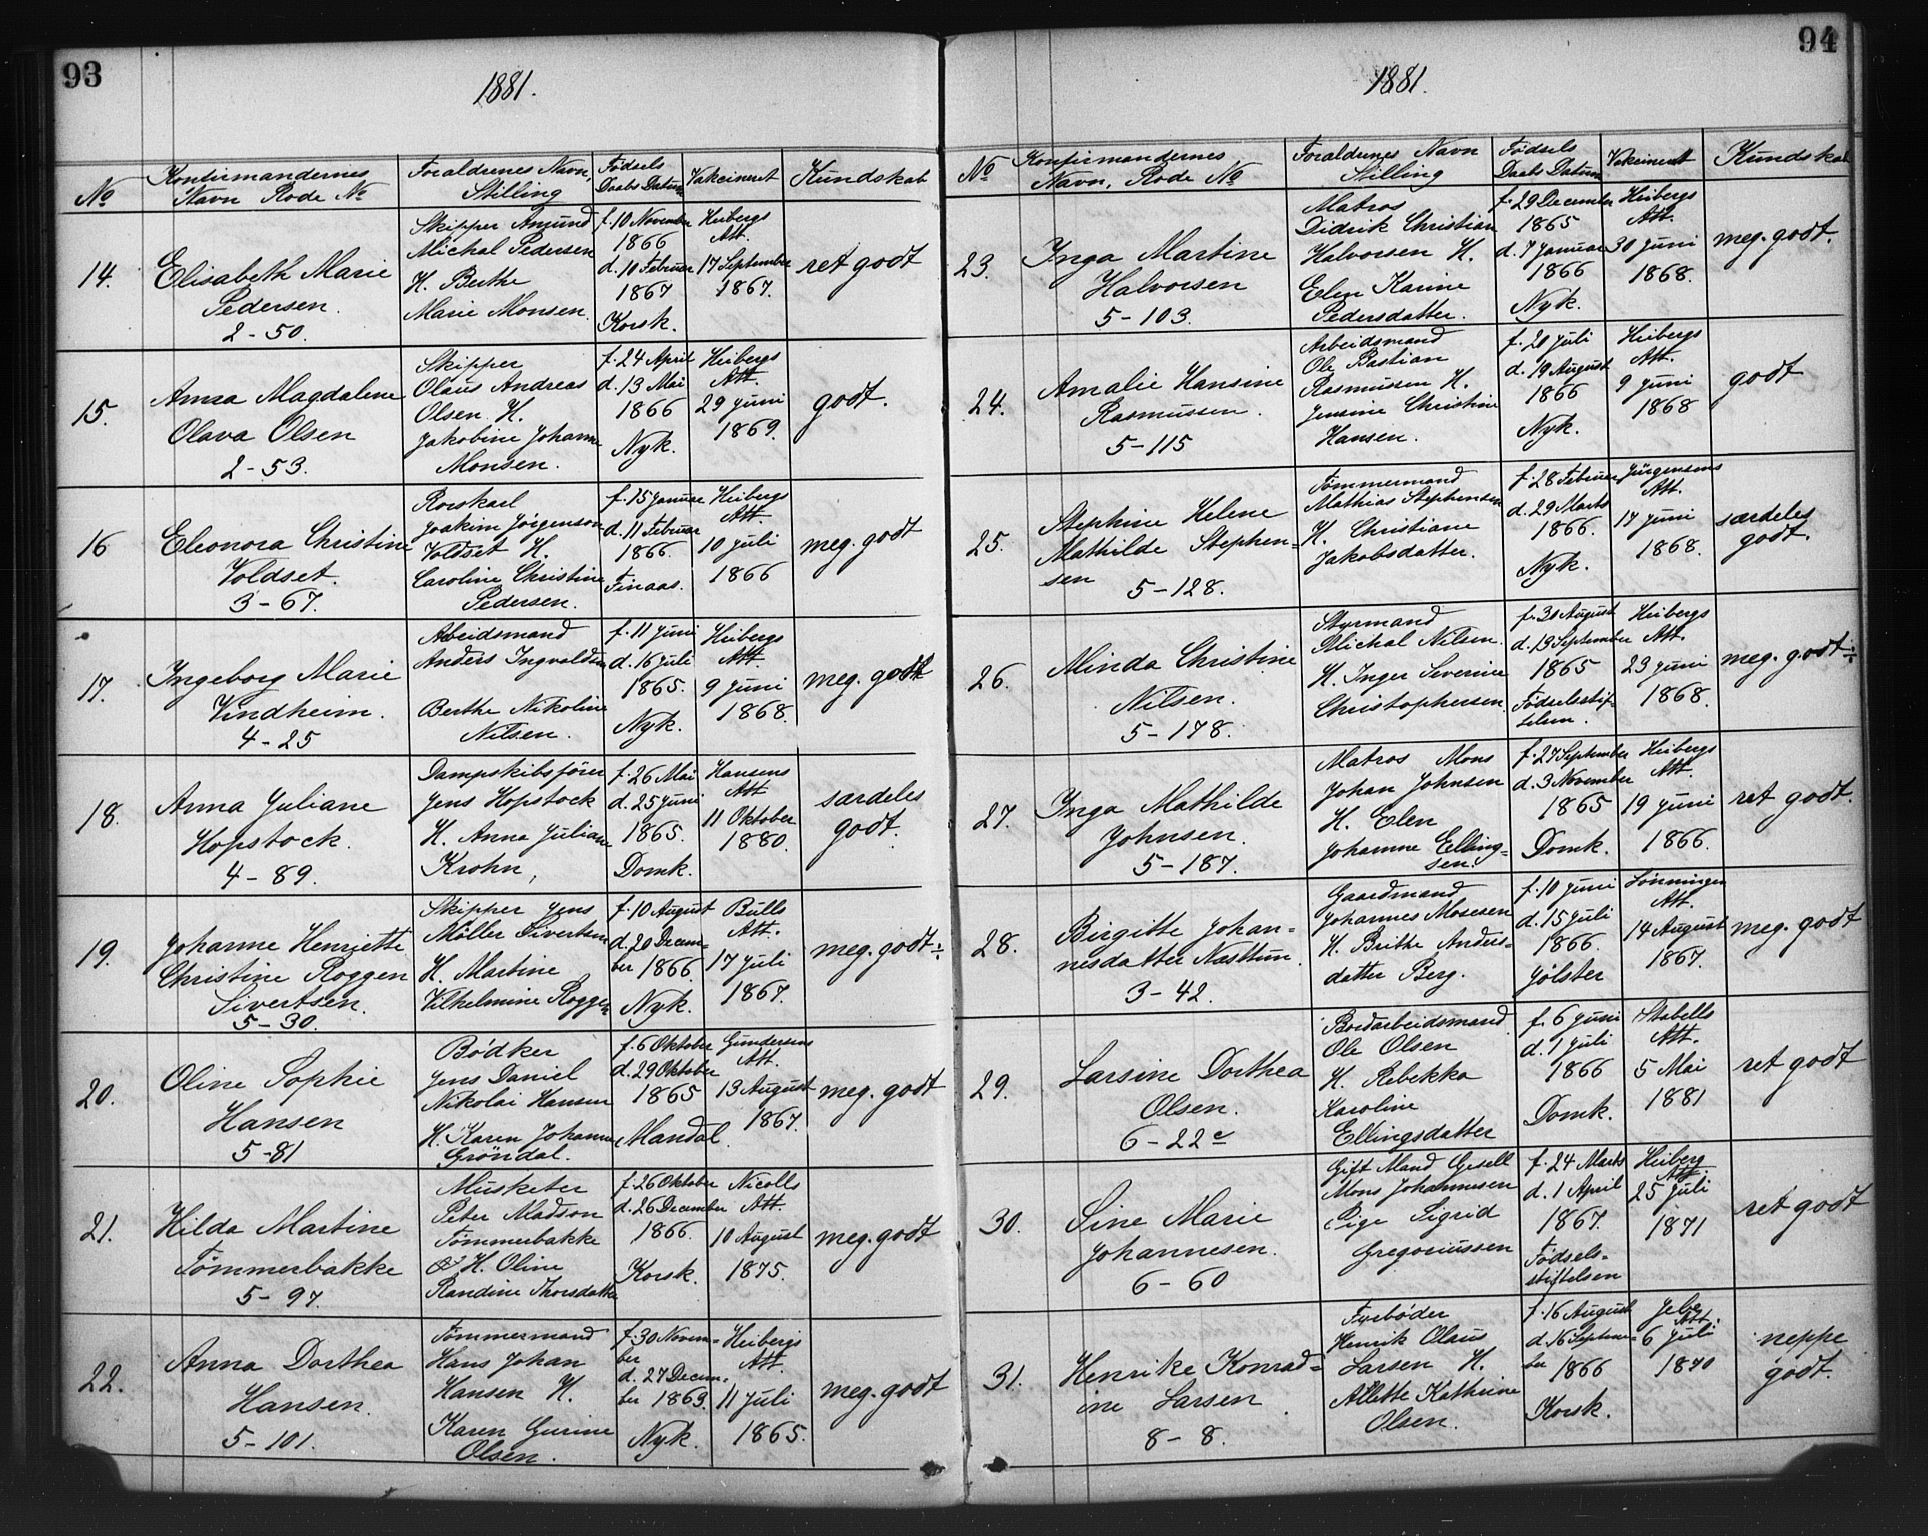 93
1881.
No
Konfirmandernes
Navn Rode No
Forældrenes Navn,
Stilling
Fødsels
Daabs Datum
Vakcineret
Kundskab
14.
Elisabeth Marie
Pedersen.
2-50.
Skipper Amund
Michal Pedersen
H. Berthe
Marie Monsen.
f. 10 November
1866
d. 10 Februar
1867
Korsk.
Heibergs
Att.
17 September
1867.
ret godt
15.
Anna Magdalene
Olava Olsen
2-53.
Skipper
Olaus Andreas
Olsen H.
Jakobine Johanne
Monsen.
f. 24 April
d. 13 Mai
1866
Nyk.
Heibergs
Att.
29 Juni
1869.
godt.
16
Eleonora Christine
Voldset.
3-67.
Rorskarl
Joakim Jørgenson
Voldset H.
Caroline Christine
Pedersen.
f. 15 Januar
d. 11 Februar
1866.
Finaas.
Heibergs
Att.
10 Juli
1866
meg. godt
17.
Ingeborg Marie
Vindheim.
4-25
Arbeidsmand
Anders Ingvaldsen
Berthe Nikoline
Nilsen.
f. 11 Juni
d. 16 Juli
1865.
Nyk.
Heibergs
Att.
9 Juni
1868.
meg. godt
18.
Anna Juliane
Hopstock.
4-89.
Dampskibsfører
Jens Hopstock
H. Anna Juliane
Krohn,
f. 26 Mai
d. 25 Juni
1865.
Domk.
Hansens
Att
11 Oktober
1880.
særdeles
godt.
19.
Johanne Henriette
Christine Roggen
Sivertsen.
5-30.
Skipper Jens
Møller Sivertsen
H. Martine
Vilhelmine Roggen
f. 10 August
d. 20 Decem-
ber 1866.
Nyk.
Bulls
Att.
17 Juli
1867.
meg. godt ÷
20.
Oline Sophie
Hansen
5-81
Bødker
Jens Daniel
Nikolai Hansen
H. Karen Johanne
Grøndal.
f. 6 Oktober
d. 29 Oktober
1865
Mandal.
Gundersens
Att.
13 August
1867.
meg. godt
21.
Hilda Martine
Tømmerbakke
5-97.
Musketer
Peter Madson
Tømmerbakke
& H. Oline
Randine Thorsdatter
f. 26 Oktober
d. 26 December
1866.
Korsk.
Nicolls
Att.
10 August
1875.
meg. godt
22.
Anna Dorthea
Hansen.
5-101.
Tømmermand
Hans Johan
Hansen H.
Karen Gurine
Olsen.
f. 30 Novem-
ber
d. 27 Decem-
ber 1863.
Nyk.
Heibergs
Att.
11 Juli
1865.
meg. godt
94
1881.
No
Konfirmandernes
Navn, Rode No
Forældrenes Navn
Stilling
Fødsels
Daabs Datum
Vakcineret
Kundskab
23.
Inga Martine
Halvorsen
5-103.
Matros
Didrik Christian
Halvorsen H.
Elen Karine
Pedersdatter.
f. 29 December
1865
d. 7 Januar
1866
Nyk.
Heibergs
Att.
30 Juni
1868.
meg. godt.
24.
Amalie Hansine
Rasmussen.
5-115
Arbeidsmand
Ole Bastian
Rasmussen H.
Jensine Christine
Hansen.
f. 20 Juli
d. 19 August
1866
Nyk.
Heibergs
Att.
9 Juni
1868
godt
25.
Stephine Helene
Mathilde Stephen=
sen
5-128.
Tømmermand
Mathias Stephensen
H. Christiane
Jakobsdatter.
f. 28 Februar
d. 29 Marts
1866.
Nyk.
Jürgensens
Att.
17 Juni
1868.
særdeles
godt.
26.
Minda Christine
Nilsen.
5-178.
Styrmand
Michal Nilsen.
H. Inger Severine
Christophersen
f. 30 August
d. 13 September
1865
Fødselsstif-
telsen.
Heibergs
Att.
23 Juni
1868.
meg. godt ÷
27.
Inga Mathilde
Johnsen.
5-187.
Matros Mons
Johan Johnsen
H. Elen
Johanne Elling=
sen.
f. 27 September
d. 3 November
1865
Domk.
Heibergs
Att.
19 Juni
1866.
ret godt.
28.
Birgitte Johan=
nesdatter Næsttun.
3-42.
Gaardmand
Johannes Mosesen
H. Brithe Anders=
datter Berg.
f. 10 Juni
d. 15 Juli
1866.
Jølster
Lønningen
Att.
14 August
1867.
meg. godt
29.
Larsine Dorthea
Olsen.
6-22c
Bordarbeidsmand
Ole Olsen
H. Rebekka
Karoline
Ellingsdatter
f. 6 Juni
d. 1 Juli
1866
Domk.
Stabells
Att.
5 Mai
1881
ret godt
30.
Sine Marie
Johannesen.
6-60
Gift Mand Gesell
Mons Johannesen
Pige Sigrid
Gregoriussen
f. 24 Marts
d. 1 April
1867.
Fødsels=
stiftelsen
Heiberg
Att
25 Juli
1871
ret godt
31.
Henrike Konrad=
ine Larsen.
8-8.
Fyrbøder
Henrik Olaus
Larsen H.
Atlette Kathrine
Olsen.
f. 16 August
d. 16 Septem=
ber 1866
Korsk.
Att.
6 Juli
1870
neppe
godt.